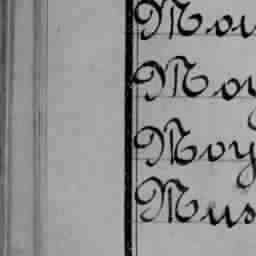 Mou
Moy
Moy
Mus